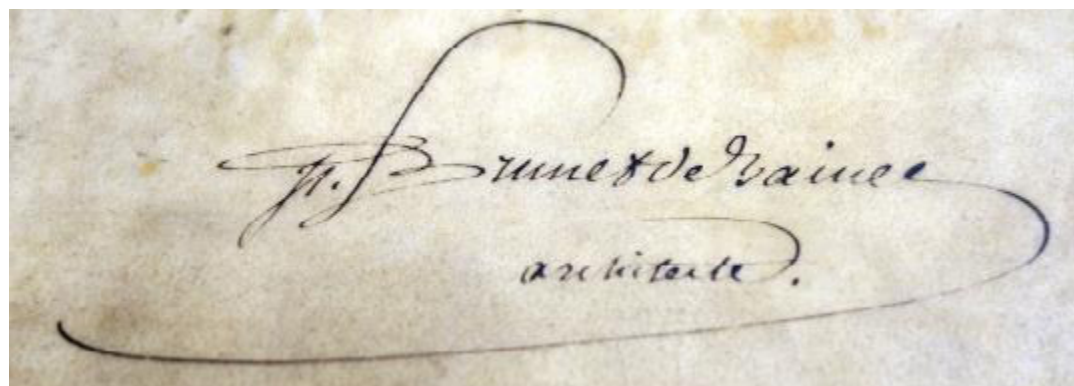 H. Brunet de Baines
architecte.